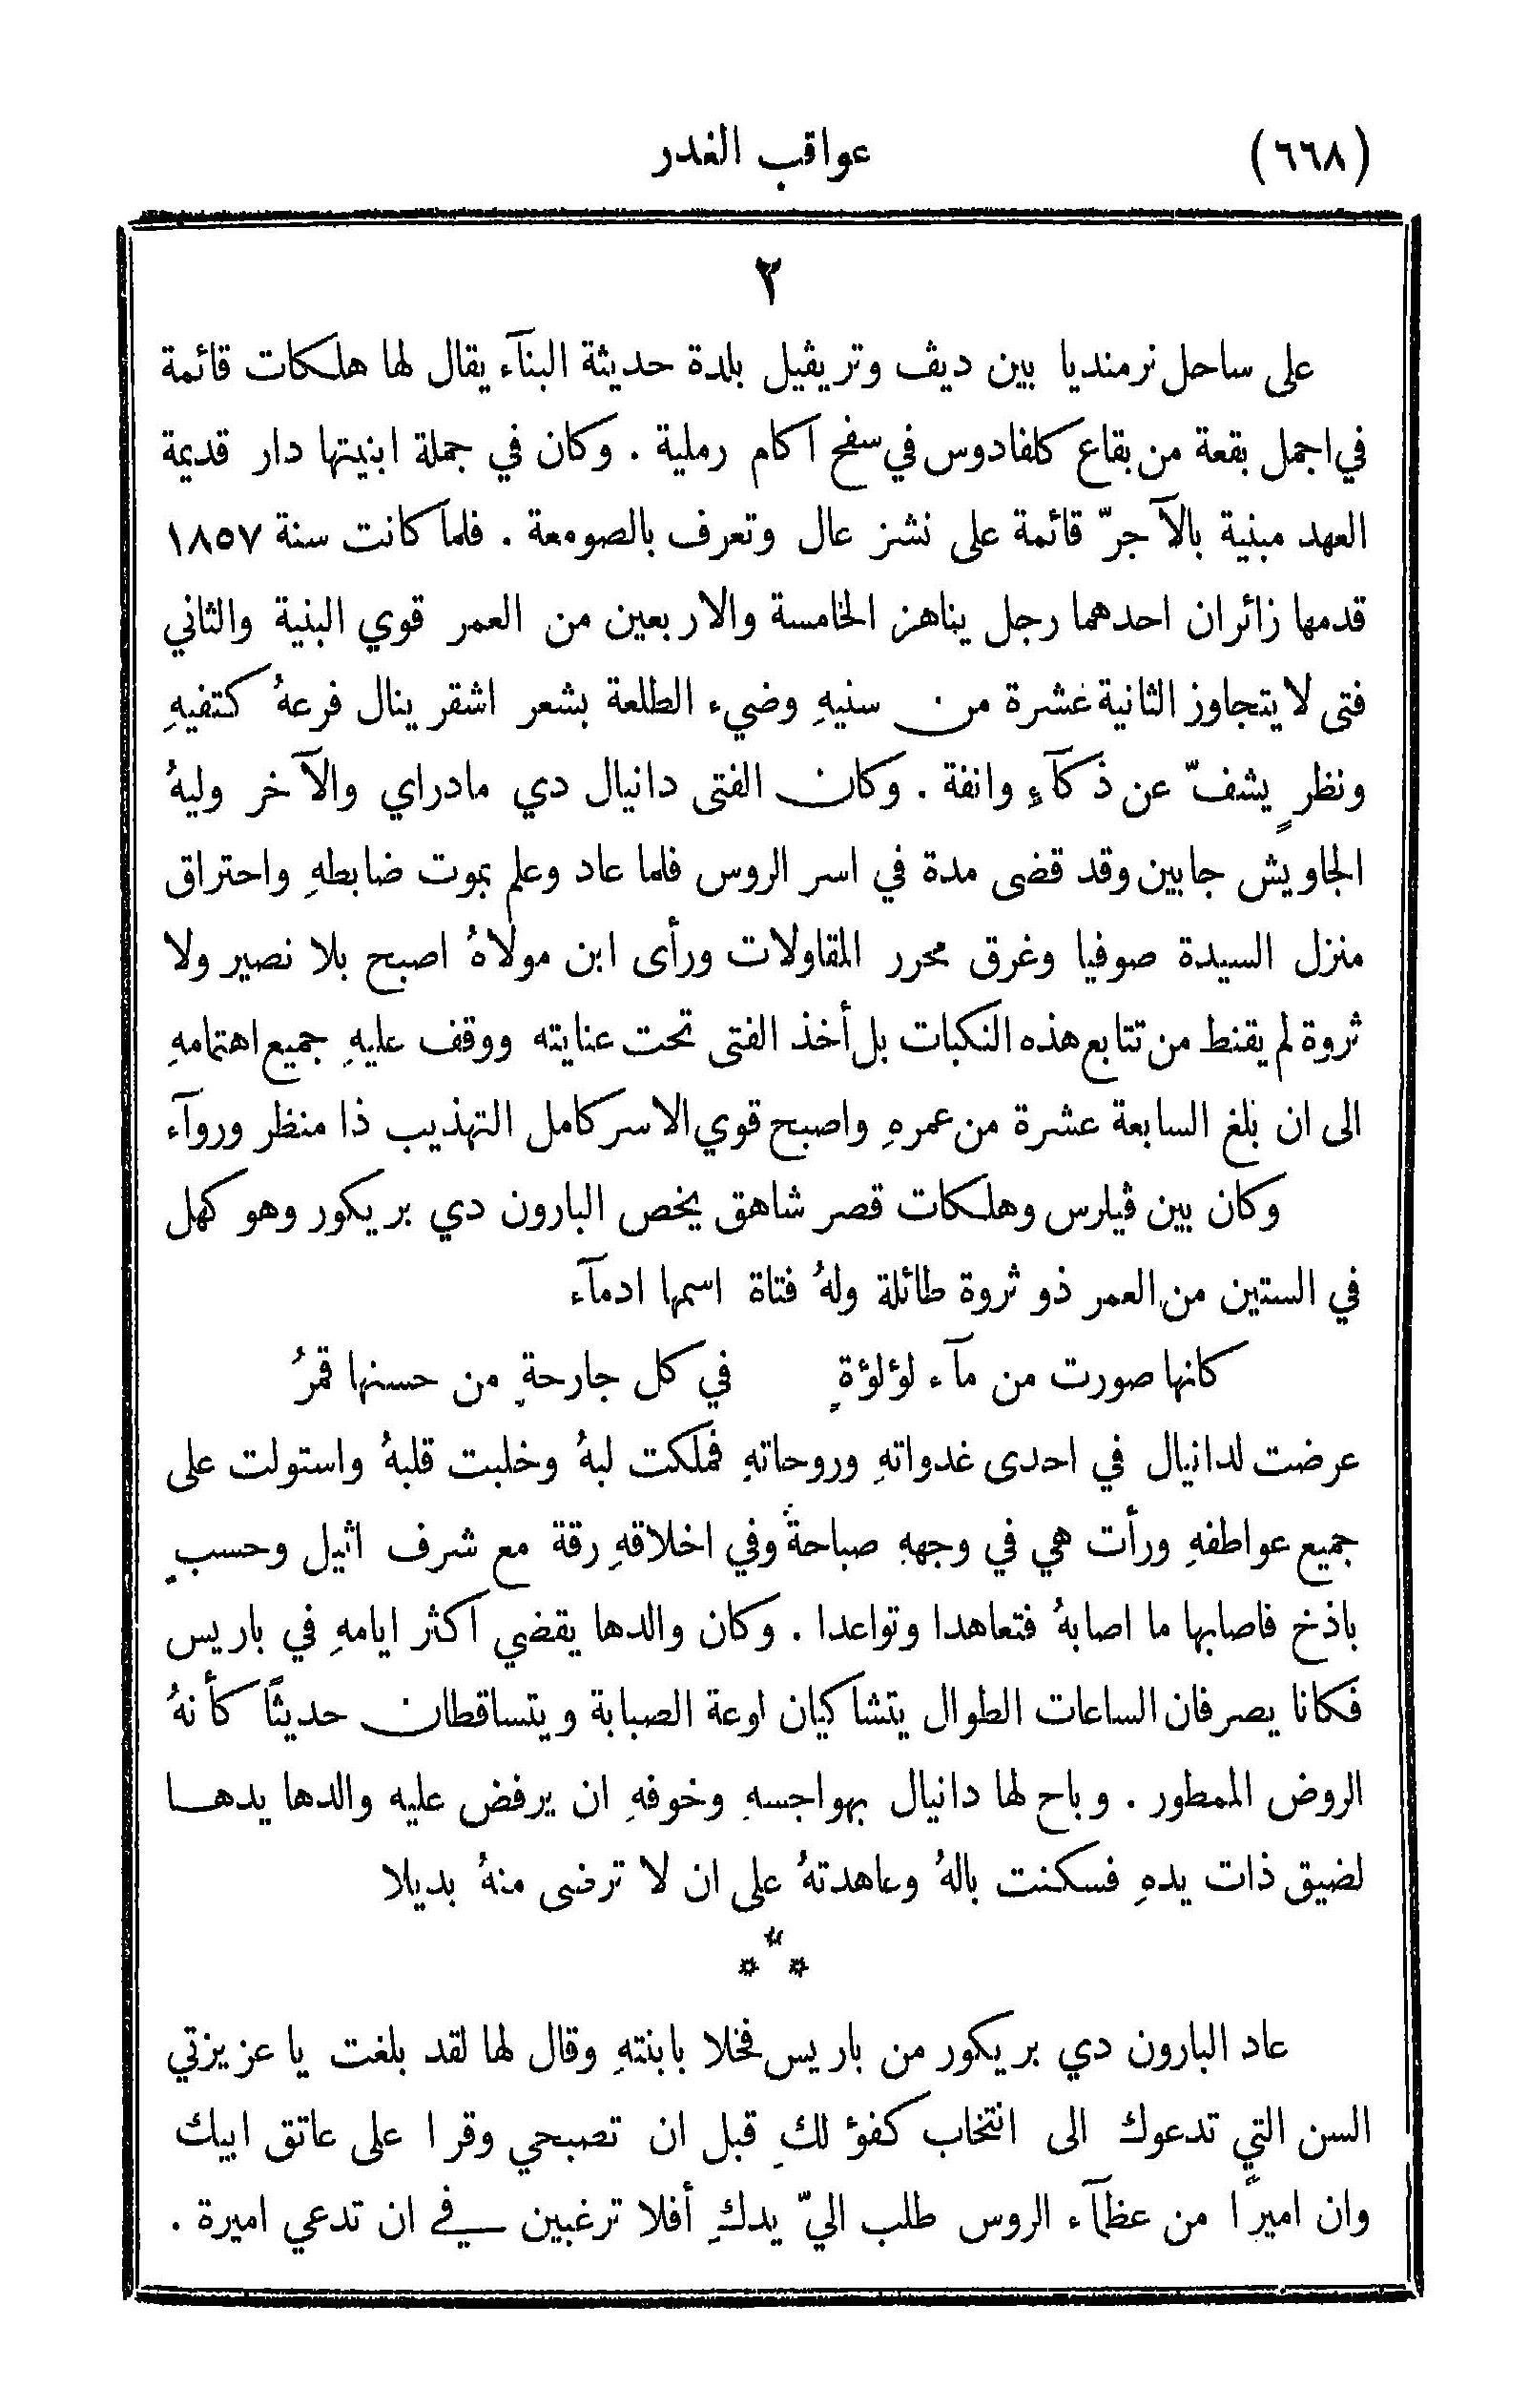 (٦٦٨) عواقب الغدر
٢
على ساحل نرمنديا بين ديڤ وتريڤيل بلدة حديثة البنآء يقال لها هلكات قائمة
في اجمل بقعة من بقاع كلفادوس في سفح اكام رملية . وكان في جملة ابنيتها دار قديمة
العهد مبنية بالآجرّ قائمة على نشز عال وتعرف بالصومعة . فلما كانت سنة ١٨٥٧
قدمها زائران احدهما رجل يناهز الخامسة والاربعين من العمر قوي البنية والثاني
فتى لا يتجاوز الثانية عشرة من سنيهِ وضيء الطلعة بشعر اشقر ينال فرعهُ كتفيهِ
ونظرٍ يشفّ عن ذكآءٍ وانفة . وكان الفتى دانيال دي مادراي والآخر وليهُ
الجاويش جابين وقد قضى مدة في اسر الروس فلما عاد وعلم بموت ضابطهِ واحتراق
منزل السيدة صوفيا وغرق محرر المقاولات ورأى ابن مولاهُ اصبح بلا نصير ولا
ثروة لم يقنط من تتابع هذه النكبات بل أخذ الفتى تحت عنايته ووقف عليهِ جميع اهتمامهِ
الى ان بلغ السابعة عشرة من عمرهِ واصبح قوي الاسر كامل التهذيب ذا منظر وروآء
وكان بين ڤيلرس وهلكات قصر شاهق يخص البارون دي بريكور وهو كهل
في الستين من العمر ذو ثروة طائلة ولهُ فتاة اسمها ادمآء
كانها صورت من مآء لؤلؤةٍ في كل جارحةٍ من حسنها قمرُ
عرضت لدانيال في احدى غدواتهِ وروحاتهِ فملكت لبهُ وخلبت قلبهُ واستولت على
جميع عواطفهِ ورأت هي في وجههِ صباحةً وفي اخلاقهِ رقة مع شرف اثيل وحسبٍ
باذخ فاصابها ما اصابهُ فتعاهدا وتواعدا . وكان والدها يقضي اكثر ايامهِ في باريس
فكانا يصرفان الساعات الطوال يتشاكيان لوعة الصبابة ويتساقطان حديثًا كأنهُ
الروض الممطور . وباح لها دانيال بهواجسهِ وخوفهِ ان يرفض عليه والدها يدها
لضيق ذات يدهِ فسكنت بالهُ وعاهدتهُ على ان لا ترضى منهُ بديلا
* * *
عاد البارون دي بريكور من باريس فخلا بابنتهِ وقال لها لقد بلغت يا عزيزتي
السن التي تدعوك الى انتخاب كفؤ لكِ قبل ان تصبحي وقرا على عاتق ابيك
وان اميرًا من عظمآء الروس طلب اليّ يدكِ أفلا ترغبين في ان تدعي اميرة .